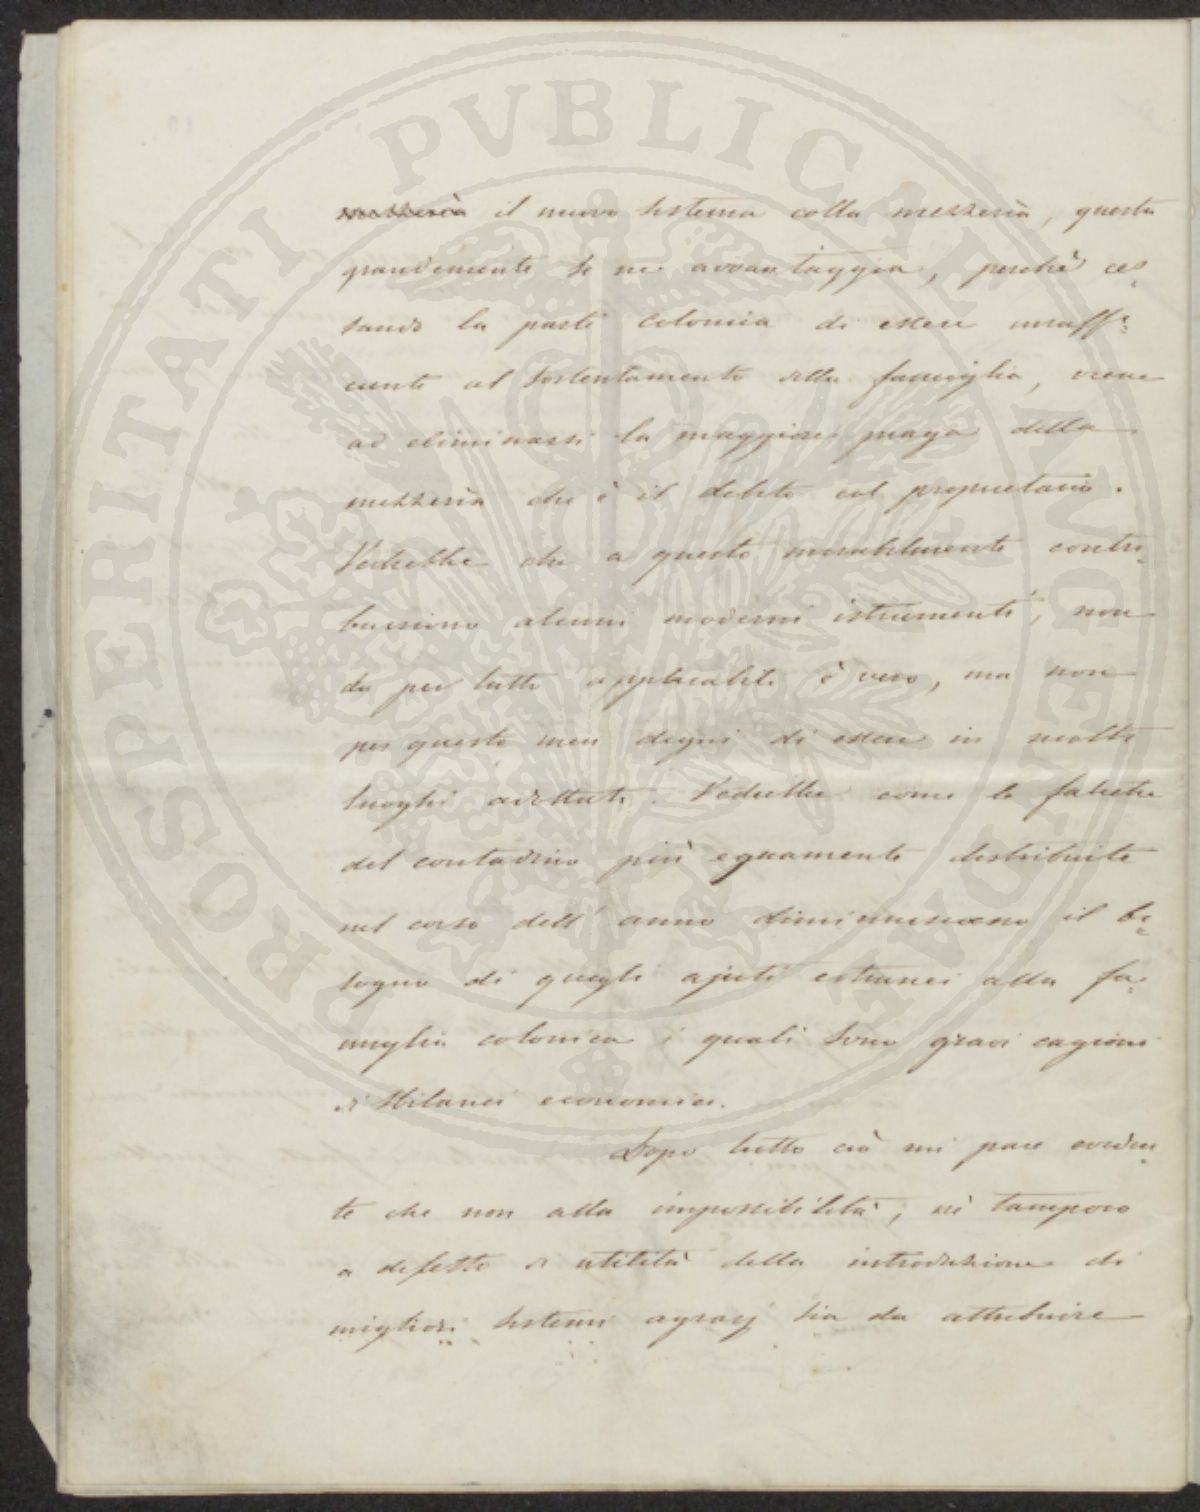 mezzeria il nuovo sistema colla mezzeria, questa
grandemente se ne avvantaggia, perchè ces=
sando la parte colonica di essere insuffi=
ciente al sostentamento della famiglia, viene
ad eliminarsi la maggiore piaga della
mezzeria che è il debito col proprietario.
Vedrebbe che a questo mirabilmente contri=
buiscono alcuni moderni istrumenti, non
da per tutto applicabili è vero, ma non
per questo men degni di essere in molti
luoghi adottati. Vedrebbe come le fatiche
del contadino più equamente distribuite
nel corso dell' anno diminuiscano il bi=
sogno di quegli ajuti estranei alla fa=
miglia colonica i quali sono gravi cagioni
di sbilanci economici.
Dopo tutto ciò mi pare eviden=
te che non alla impossibilità, nè tampoco
a difetto di utilità della introduzione di
migliori sistemi agrarj sia da attribuire
PROSPERITATI PVBLICAE AVGENDAE